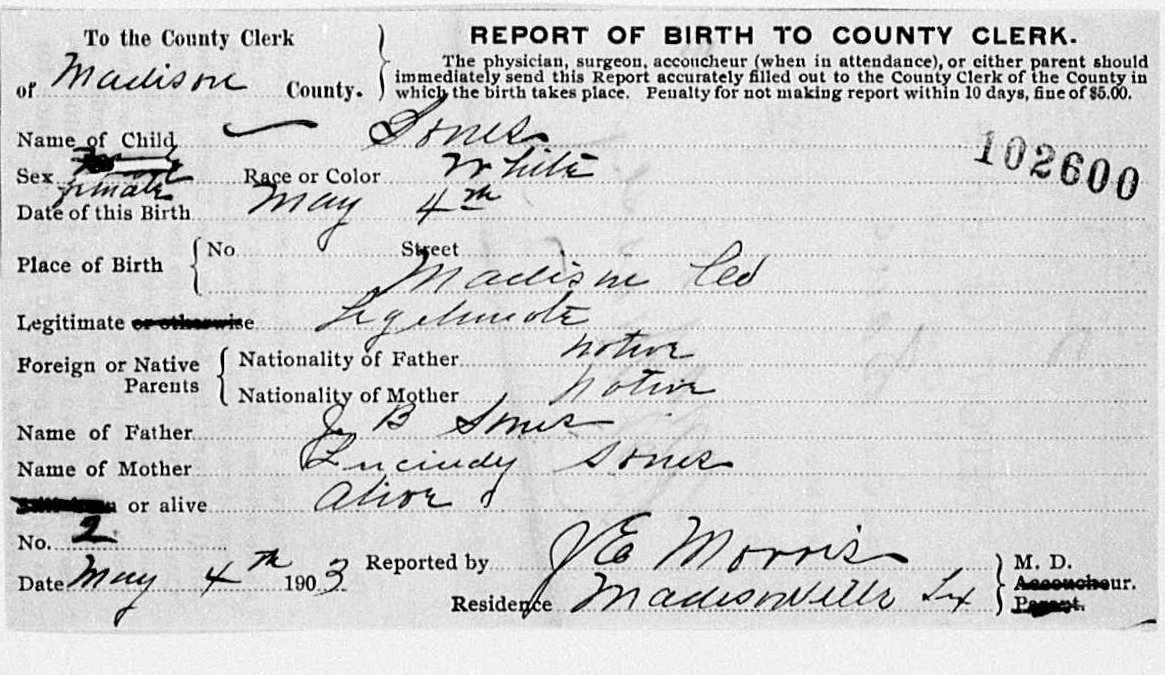 To the County Clerk
of Madison County.
REPORT OF BIRTH TO COUNTY CLERK.
The physician, surgeon, accoucheur (when in attendance), or either parent should
immediately send this Report accurately filled out to the County Clerk of the County in
which the birth takes place. Penalty for not making report within 10 days, fine of $5.00.
Name of Child Sones
102600
Sex female Race or Color White
Date of this Birth May 4th
Place of Birth No. Street
Madison Co
Legitimate or otherwise Legitimate
Foreign or Native Parents
Nationality of Father native
Nationality of Mother native
Name of Father J B Sones
Name of Mother Lucindy Sones
or alive Alive
No. 2
Date May 4th 1903
Reported by J E Morris M. D.
Accoucheur.
Residence Madisonville Tex Parent.